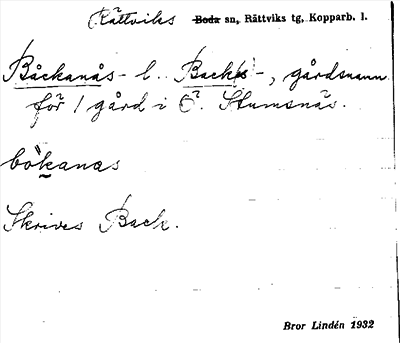 Rättviks Boda sn, Rättviks tg, Kopparb. l.
Båckanås- l. Backus-, gårdsnamn
för 1 gård i Ö. Stumsnäs.
bòkanas
Skrives Back.
Bror Lindén 1932